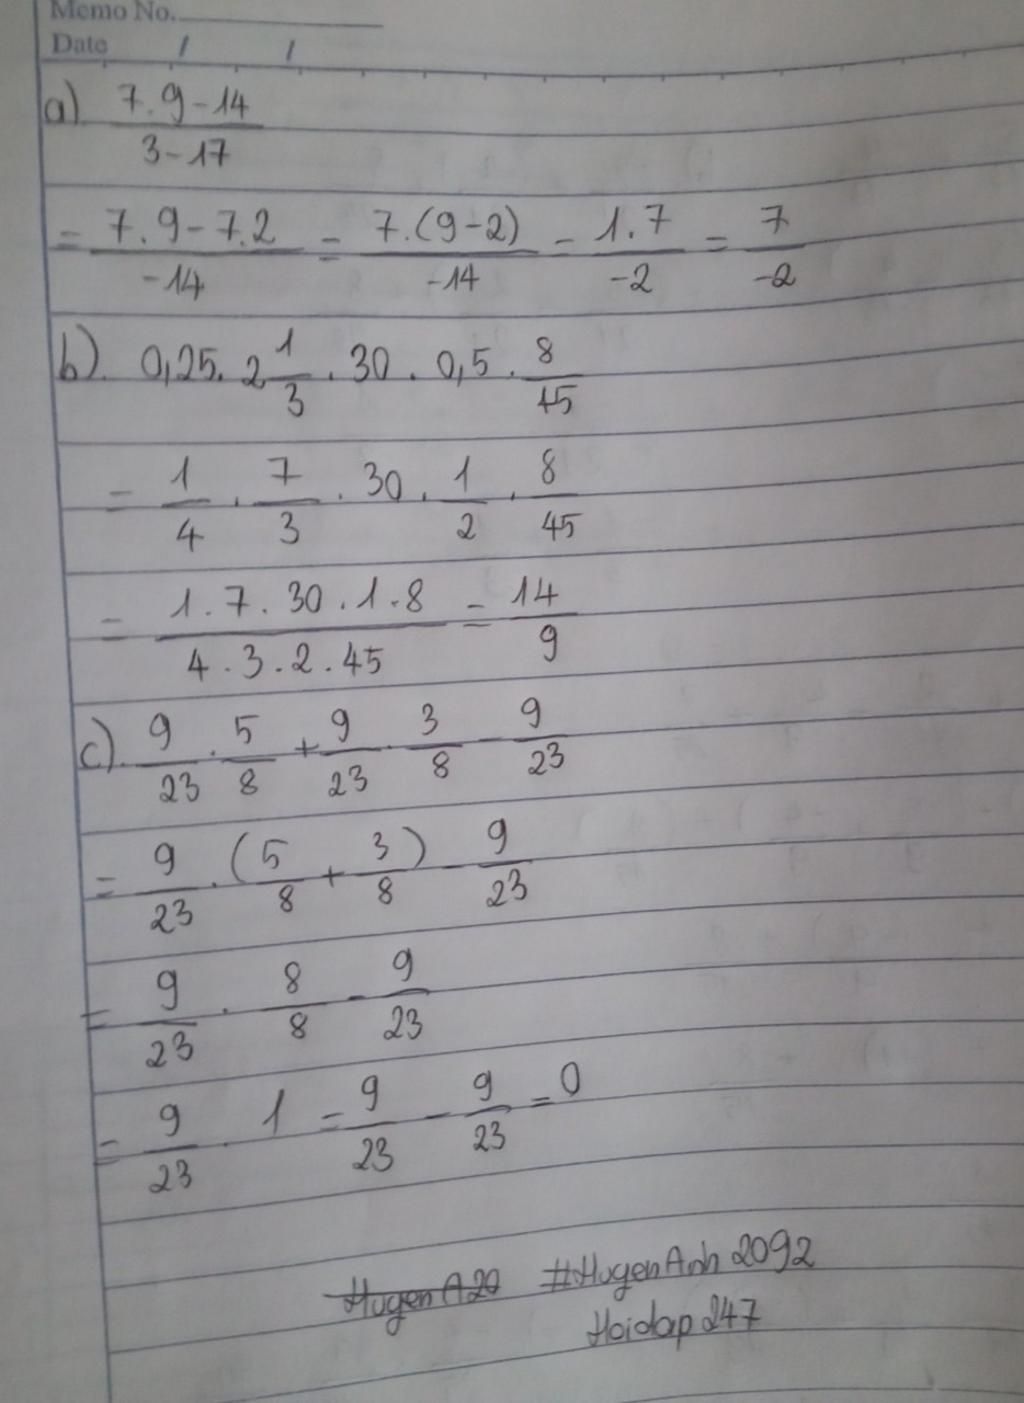 Memo No.
Date / /
a) \frac{7.9-14}{3-17}
= \frac{7.9-7.2}{-14} = \frac{7.(9-2)}{-14} = \frac{1.7}{-2} = \frac{7}{-2}
b). 0,25. 2\frac{1}{3} . 30 . 0,5 . \frac{8}{45}
= \frac{1}{4} . \frac{7}{3} . 30 . \frac{1}{2} . \frac{8}{45}
= \frac{1.7.30.1.8}{4.3.2.45} = \frac{14}{9}
c). \frac{9}{23} . \frac{5}{8} + \frac{9}{23} . \frac{3}{8} - \frac{9}{23}
= \frac{9}{23} . (\frac{5}{8} + \frac{3}{8}) - \frac{9}{23}
= \frac{9}{23} . \frac{8}{8} - \frac{9}{23}
= \frac{9}{23} . 1 = \frac{9}{23} - \frac{9}{23} = 0
#HugenAnh2092
Hoidap247